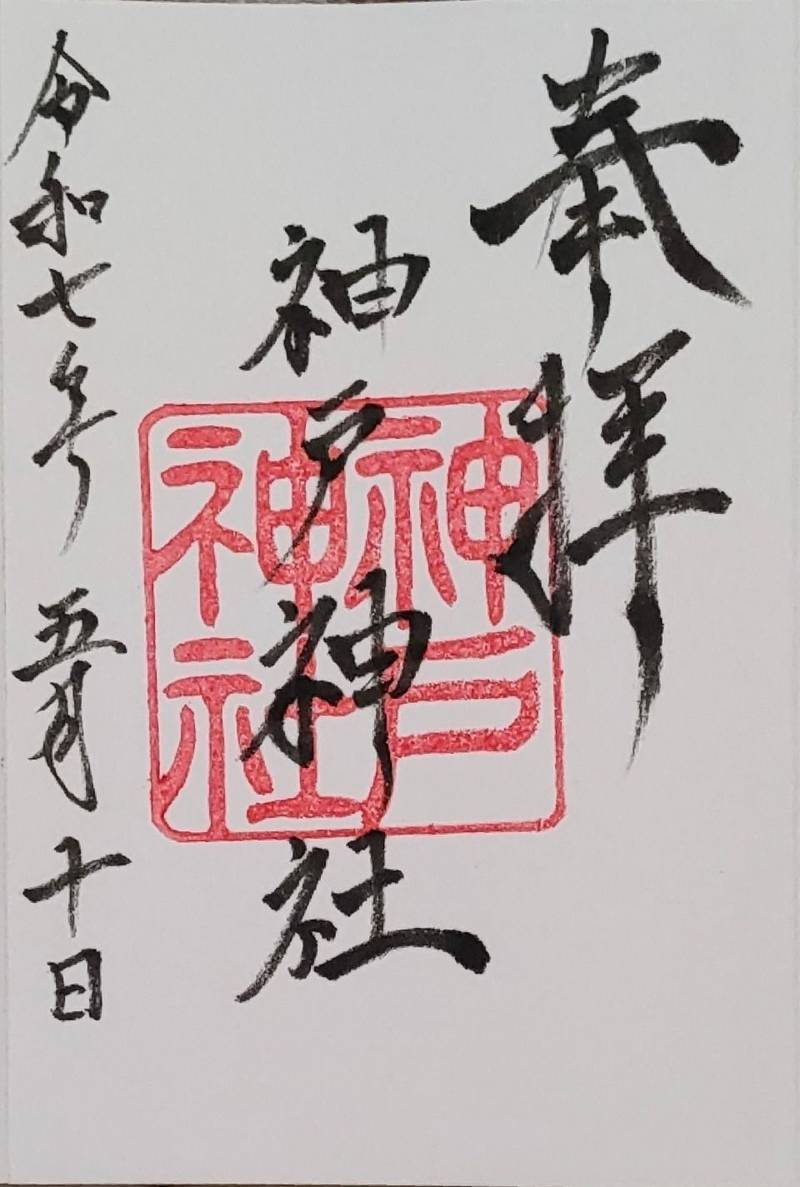 奉拝
神戸神社
神戸神社
令和七年五月十日